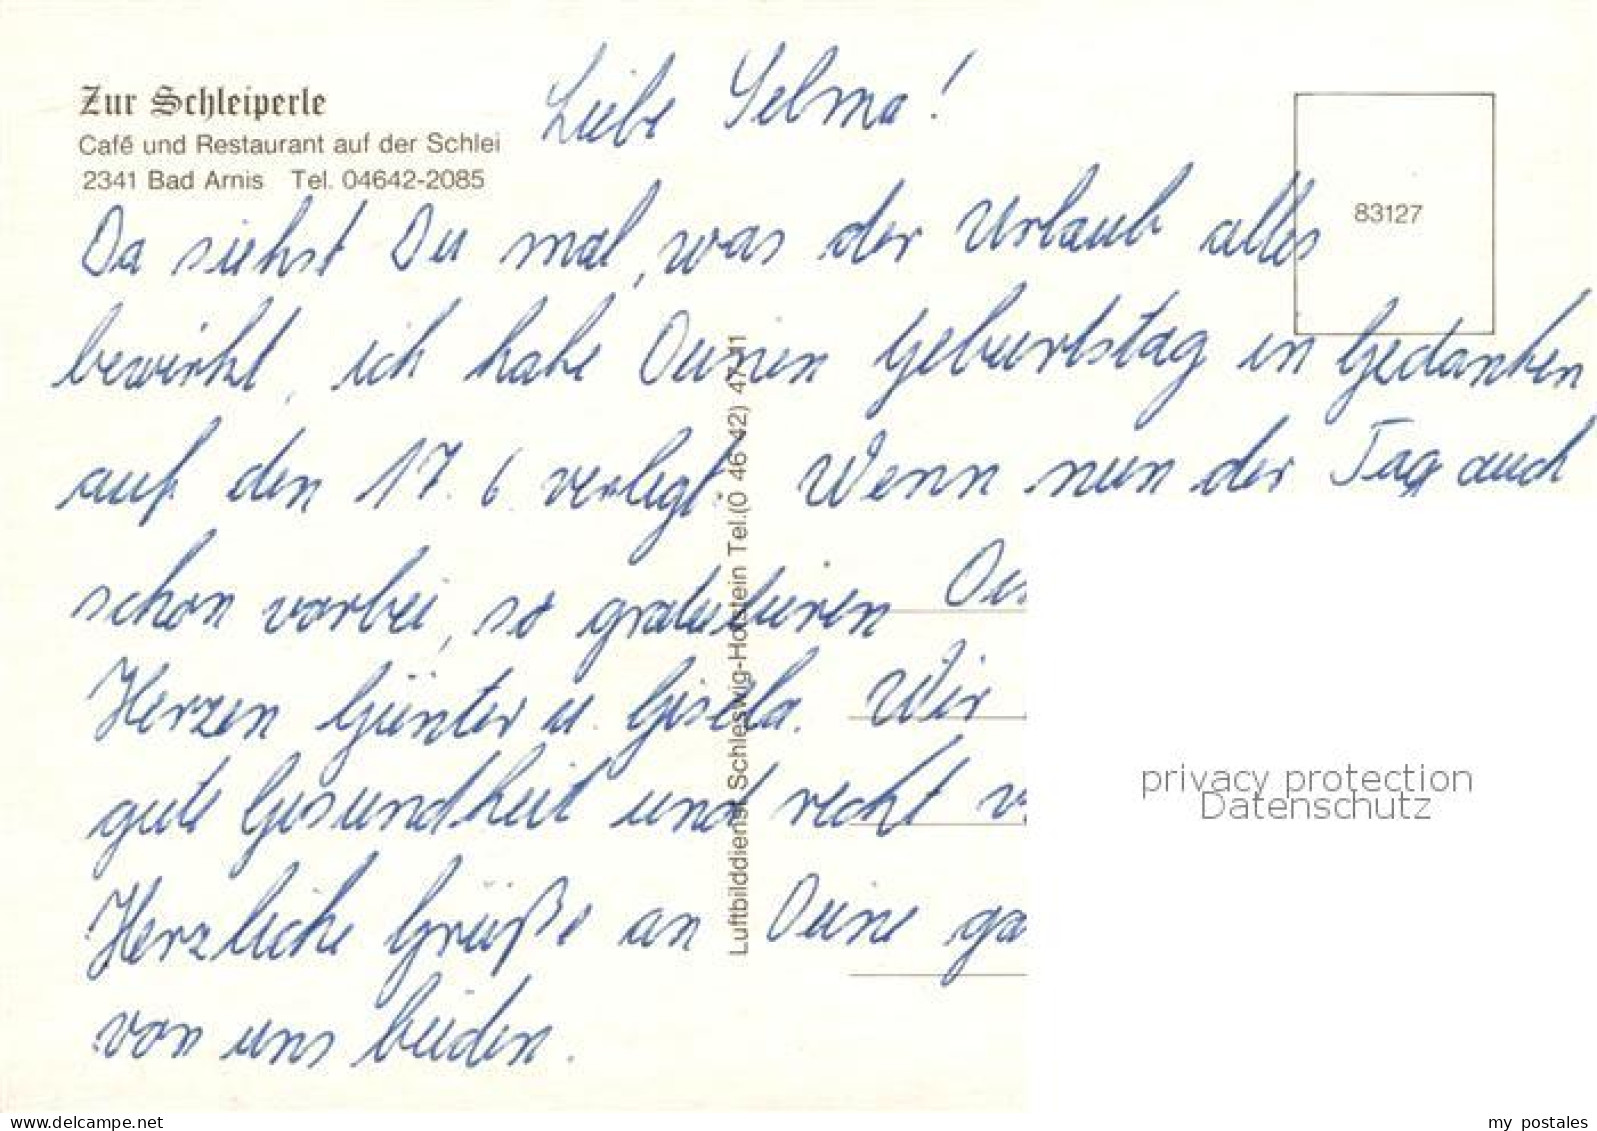 Zur Schleiperle
Café und Restaurant auf der Schlei
2341 Bad Arnis Tel. 04642-2085
Liebe Selma!
83127
Da siehst Du mal, was der Urlaub alles
bewirkt, ich habe Deinen Geburtstag in Gedanken
auf den 17. 6 verlegt. Wenn nun der Tag auch
schon vorbei, so gratulieren
Herzen Günter u. Gisela. Wir
gute Gesundheit und recht
Herzliche Grüße an Deine
von uns beiden.
Luftbilddienst Schleswig-Holstein Tel.(0 46 42) 47 11
privacy protection
Datenschutz
www.delcampe.net
my_postales